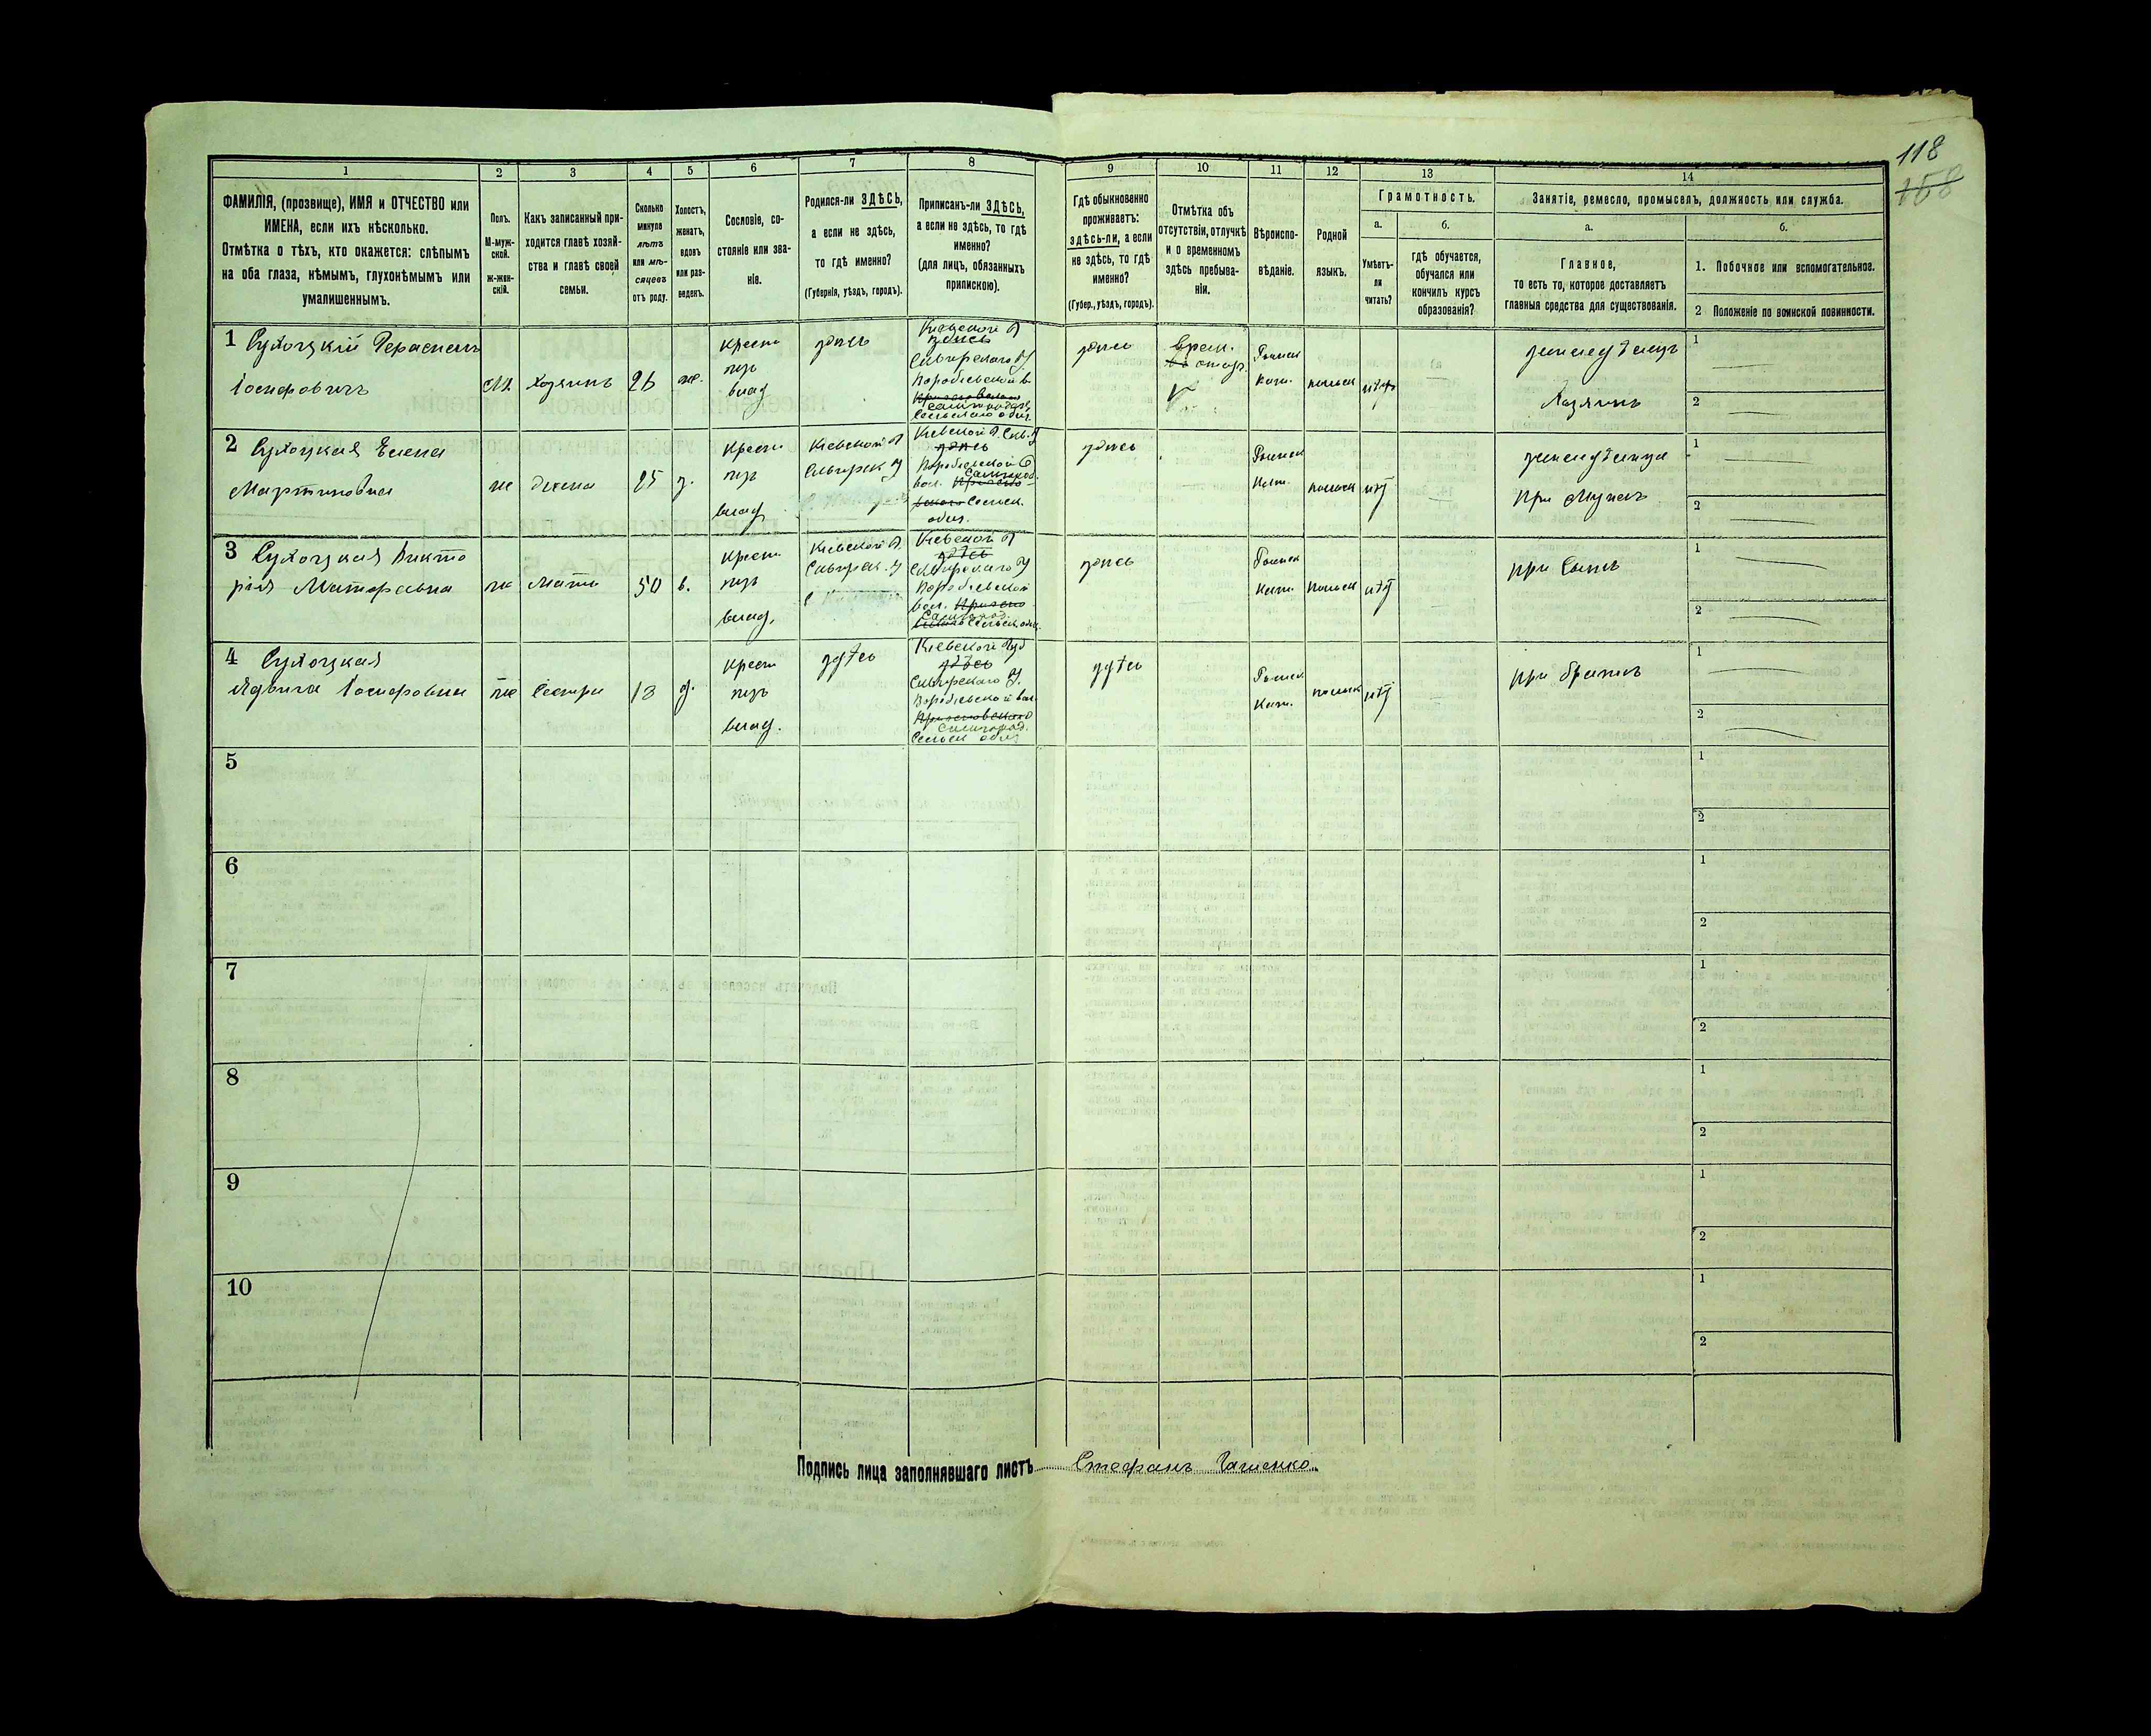 118
158
1
2
3
4
5
6
7
8
9
10
11
12
13
14
ФАМИЛІЯ, (прозвище), ИМЯ и ОТЧЕСТВО или
ИМЕНА, если ихъ нѣсколько.
Отмѣтка о тѣхъ, кто окажется: слѣпымъ
на оба глаза, нѣмымъ, глухонѣмымъ или
умалишеннымъ.
Полъ.
М-муж-
ской.
Ж-жен-
скій.
Какъ записанный при-
ходится главѣ хозяй-
ства и главѣ своей
семьи.
Сколько
минуло
лѣтъ
или мѣ-
сяцевъ
отъ роду.
Холостъ,
женатъ,
вдовъ
или раз-
веденъ.
Сословіе, со-
стояніе или зва-
ніе.
Родился-ли ЗДѢСЬ,
а если не здѣсь,
то гдѣ именно?
(Губернія, уѣздъ, городъ).
Приписанъ-ли ЗДѢСЬ,
а если не здѣсь, то гдѣ
именно?
(для лицъ, обязанныхъ
припискою).
Гдѣ обыкновенно
проживаетъ:
здѣсь-ли, а если
не здѣсь, то гдѣ
именно?
(Губер., уѣздъ, городъ).
Отмѣтка объ
отсутствіи, отлучкѣ
и о временномъ
здѣсь пребыва-
ніи.
Вѣроиспо-
вѣданіе.
Родной
языкъ.
Грамотность.
а.
Умѣетъ-
ли
читать?
б.
гдѣ обучается,
обучался или
кончилъ курсъ
образованія?
Занятіе, ремесло, промыселъ, должность или служба.
а.
Главное,
то есть то, которое доставляетъ
главныя средства для существованія.
б.
1. Побочное или вспомогательное.
2 Положеніе по воинской повинности.
1 Сухоцкій
Іосифовичъ
М.
Хозяинъ
26
ж.
крест
изъ
влад
здѣсь
Кіевской г
здѣсь
Сквирскаго у
здѣсь
врем.
Римск
Кат.
польск
нѣтъ
земледѣлецъ
Хозяинъ
1
2
2 Сухоцкая Елена
Мартиновна
ж
жена
25
з.
крест
изъ
влад
Кіевской г
Сквирск у
Кіевской г. Скв. у
здѣсь
здѣсь
Римск
Кат.
польск
нѣтъ
земледѣлица
при мужѣ
1
2
3 Сухоцкая Викто
рія
ж
мать
50
в.
крест
изъ
влад.
Кіевской г
Сквирск. у
Кіевской г
здѣсь
Сквирскаго у
здѣсь
Римск
Кат.
польск
нѣтъ
при сынѣ
1
2
4 Сухоцкая
Ядвига Іосифовна
ж
Сестра
13
д.
крест
изъ
влад.
здѣсь
Кіевской губ
здѣсь
Сквирскаго у.
здѣсь
Римск
Кат.
польск
нѣтъ
при братѣ
1
2
5
1
2
6
1
2
7
1
2
8
1
2
9
1
2
10
1
2
Подпись лица заполнявшаго листъ
Стефанъ